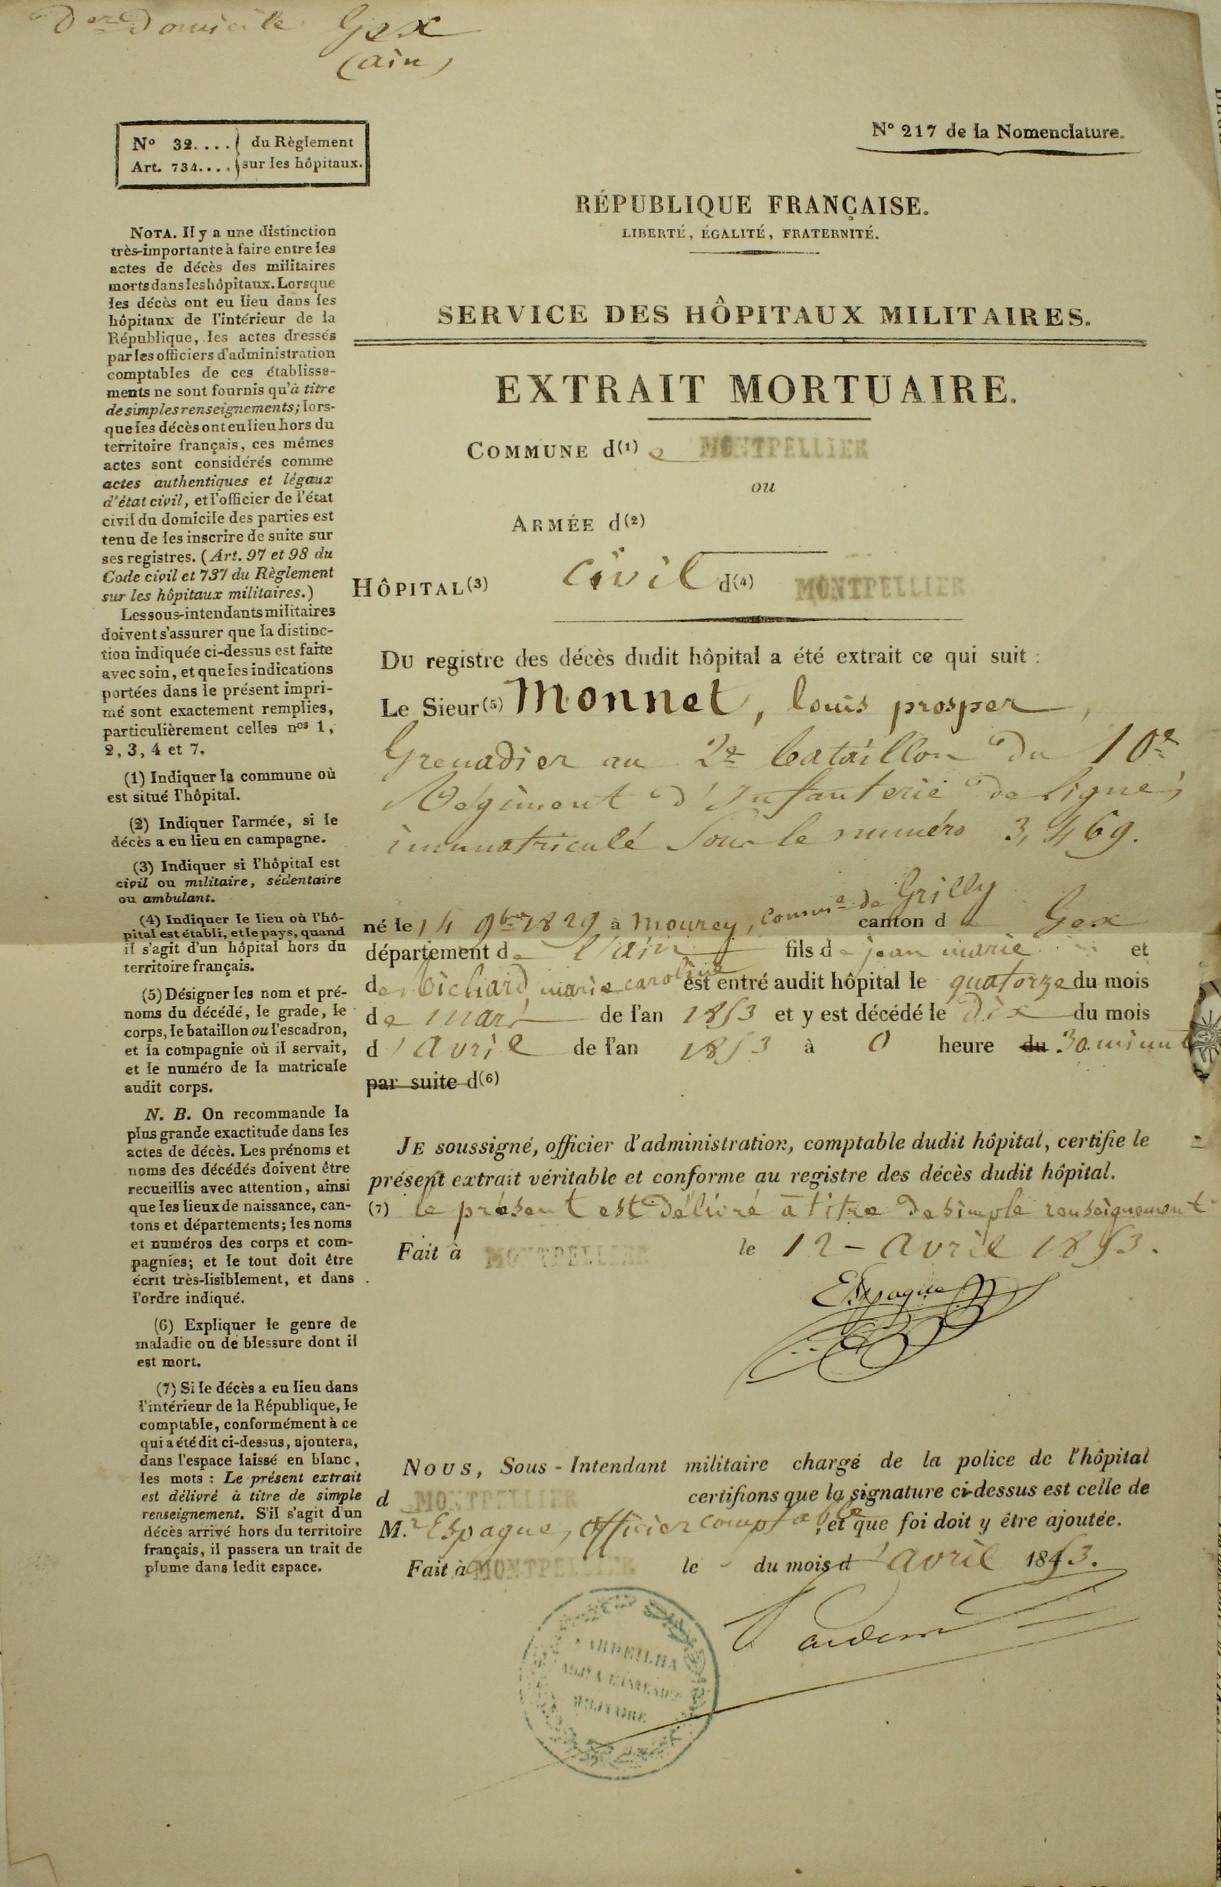 Der Domicile Gex
(ain)
No 32.... du Règlement
Art. 734.... sur les hôpitaux.
No 217 de la Nomenclature.
RÉPUBLIQUE FRANÇAISE.
LIBERTÉ, ÉGALITÉ, FRATERNITÉ.
SERVICE DES HÔPITAUX MILITAIRES.
EXTRAIT MORTUAIRE.
COMMUNE d(1) e MONTPELLIER
ou
ARMÉE d(2)
HÔPITAL(3) civil d(4) MONTPELLIER
DU registre des décès dudit hôpital a été extrait ce qui suit :
Le Sieur(5) Monnet, louis prosper,
Grenadier au 2e bataillon du 10e
Régiment d'Infanterie de ligne,
immatriculé sous le numéro 3,469.
né le 14 9bre 1829 à Mourey, commne de Grilly canton d e Gex
département de l'ain fils de jean marie et
de Bichard, marie caroline est entré audit hôpital le quatorze du mois
de mars de l'an 1853 et y est décédé le dix du mois
d'avril de l'an 1853 à 0 heure du 30 minut
par suite d(6)
JE soussigné, officier d'administration, comptable dudit hôpital, certifie le
présent extrait véritable et conforme au registre des décès dudit hôpital.
(7) le présent est délivré à titre de simple renseignement
Fait à MONTPELLIER le 12 avril 1853.
Espagne
NOUS, Sous-Intendant militaire chargé de la police de l'hôpital
d MONTPELLIER certifions que la signature ci-dessus est celle de
M.r Espagne, officier comptable, et que foi doit y être ajoutée.
Fait à MONTPELLIER le du mois d'avril 1853.
MILITAIRE
NOTA. Il y a une distinction
très-importante à faire entre les
actes de décès des militaires
morts dans les hôpitaux. Lorsque
les décès ont eu lieu dans les
hôpitaux de l'intérieur de la
République, les actes dressés
par les officiers d'administration
comptables de ces établisse-
ments ne sont fournis qu'à titre
de simples renseignements; lors-
que les décès ont eu lieu hors du
territoire français, ces mêmes
actes sont considérés comme
actes authentiques et légaux
d'état civil, et l'officier de l'état
civil du domicile des parties est
tenu de les inscrire de suite sur
ses registres. (Art. 97 et 98 du
Code civil et 737 du Règlement
sur les hôpitaux militaires.)
Les sous-intendants militaires
doivent s'assurer que la distinc-
tion indiquée ci-dessus est faite
avec soin, et que les indications
portées dans le présent impri-
mé sont exactement remplies,
particulièrement celles nos 1,
2, 3, 4 et 7.
(1) Indiquer la commune où
est situé l'hôpital.
(2) Indiquer l'armée, si le
décès a eu lieu en campagne.
(3) Indiquer si l'hôpital est
civil ou militaire, sédentaire
ou ambulant.
(4) Indiquer le lieu où l'hô-
pital est établi, et le pays, quand
il s'agit d'un hôpital hors du
territoire français.
(5) Désigner les nom et pré-
noms du décédé, le grade, le
corps, le bataillon ou l'escadron,
et la compagnie où il servait,
et le numéro de la matricule
audit corps.
N. B. On recommande la
plus grande exactitude dans les
actes de décès. Les prénoms et
noms des décédés doivent être
recueillis avec attention, ainsi
que les lieux de naissance, can-
tons et départements; les noms
et numéros des corps et com-
pagnies; et le tout doit être
écrit très-lisiblement, et dans
l'ordre indiqué.
(6) Expliquer le genre de
maladie ou de blessure dont il
est mort.
(7) Si le décès a eu lieu dans
l'intérieur de la République, le
comptable, conformément à ce
qui a été dit ci-dessus, ajoutera,
dans l'espace laissé en blanc,
les mots : Le présent extrait
est délivré à titre de simple
renseignement. S'il s'agit d'un
décès arrivé hors du territoire
français, il passera un trait de
plume dans ledit espace.